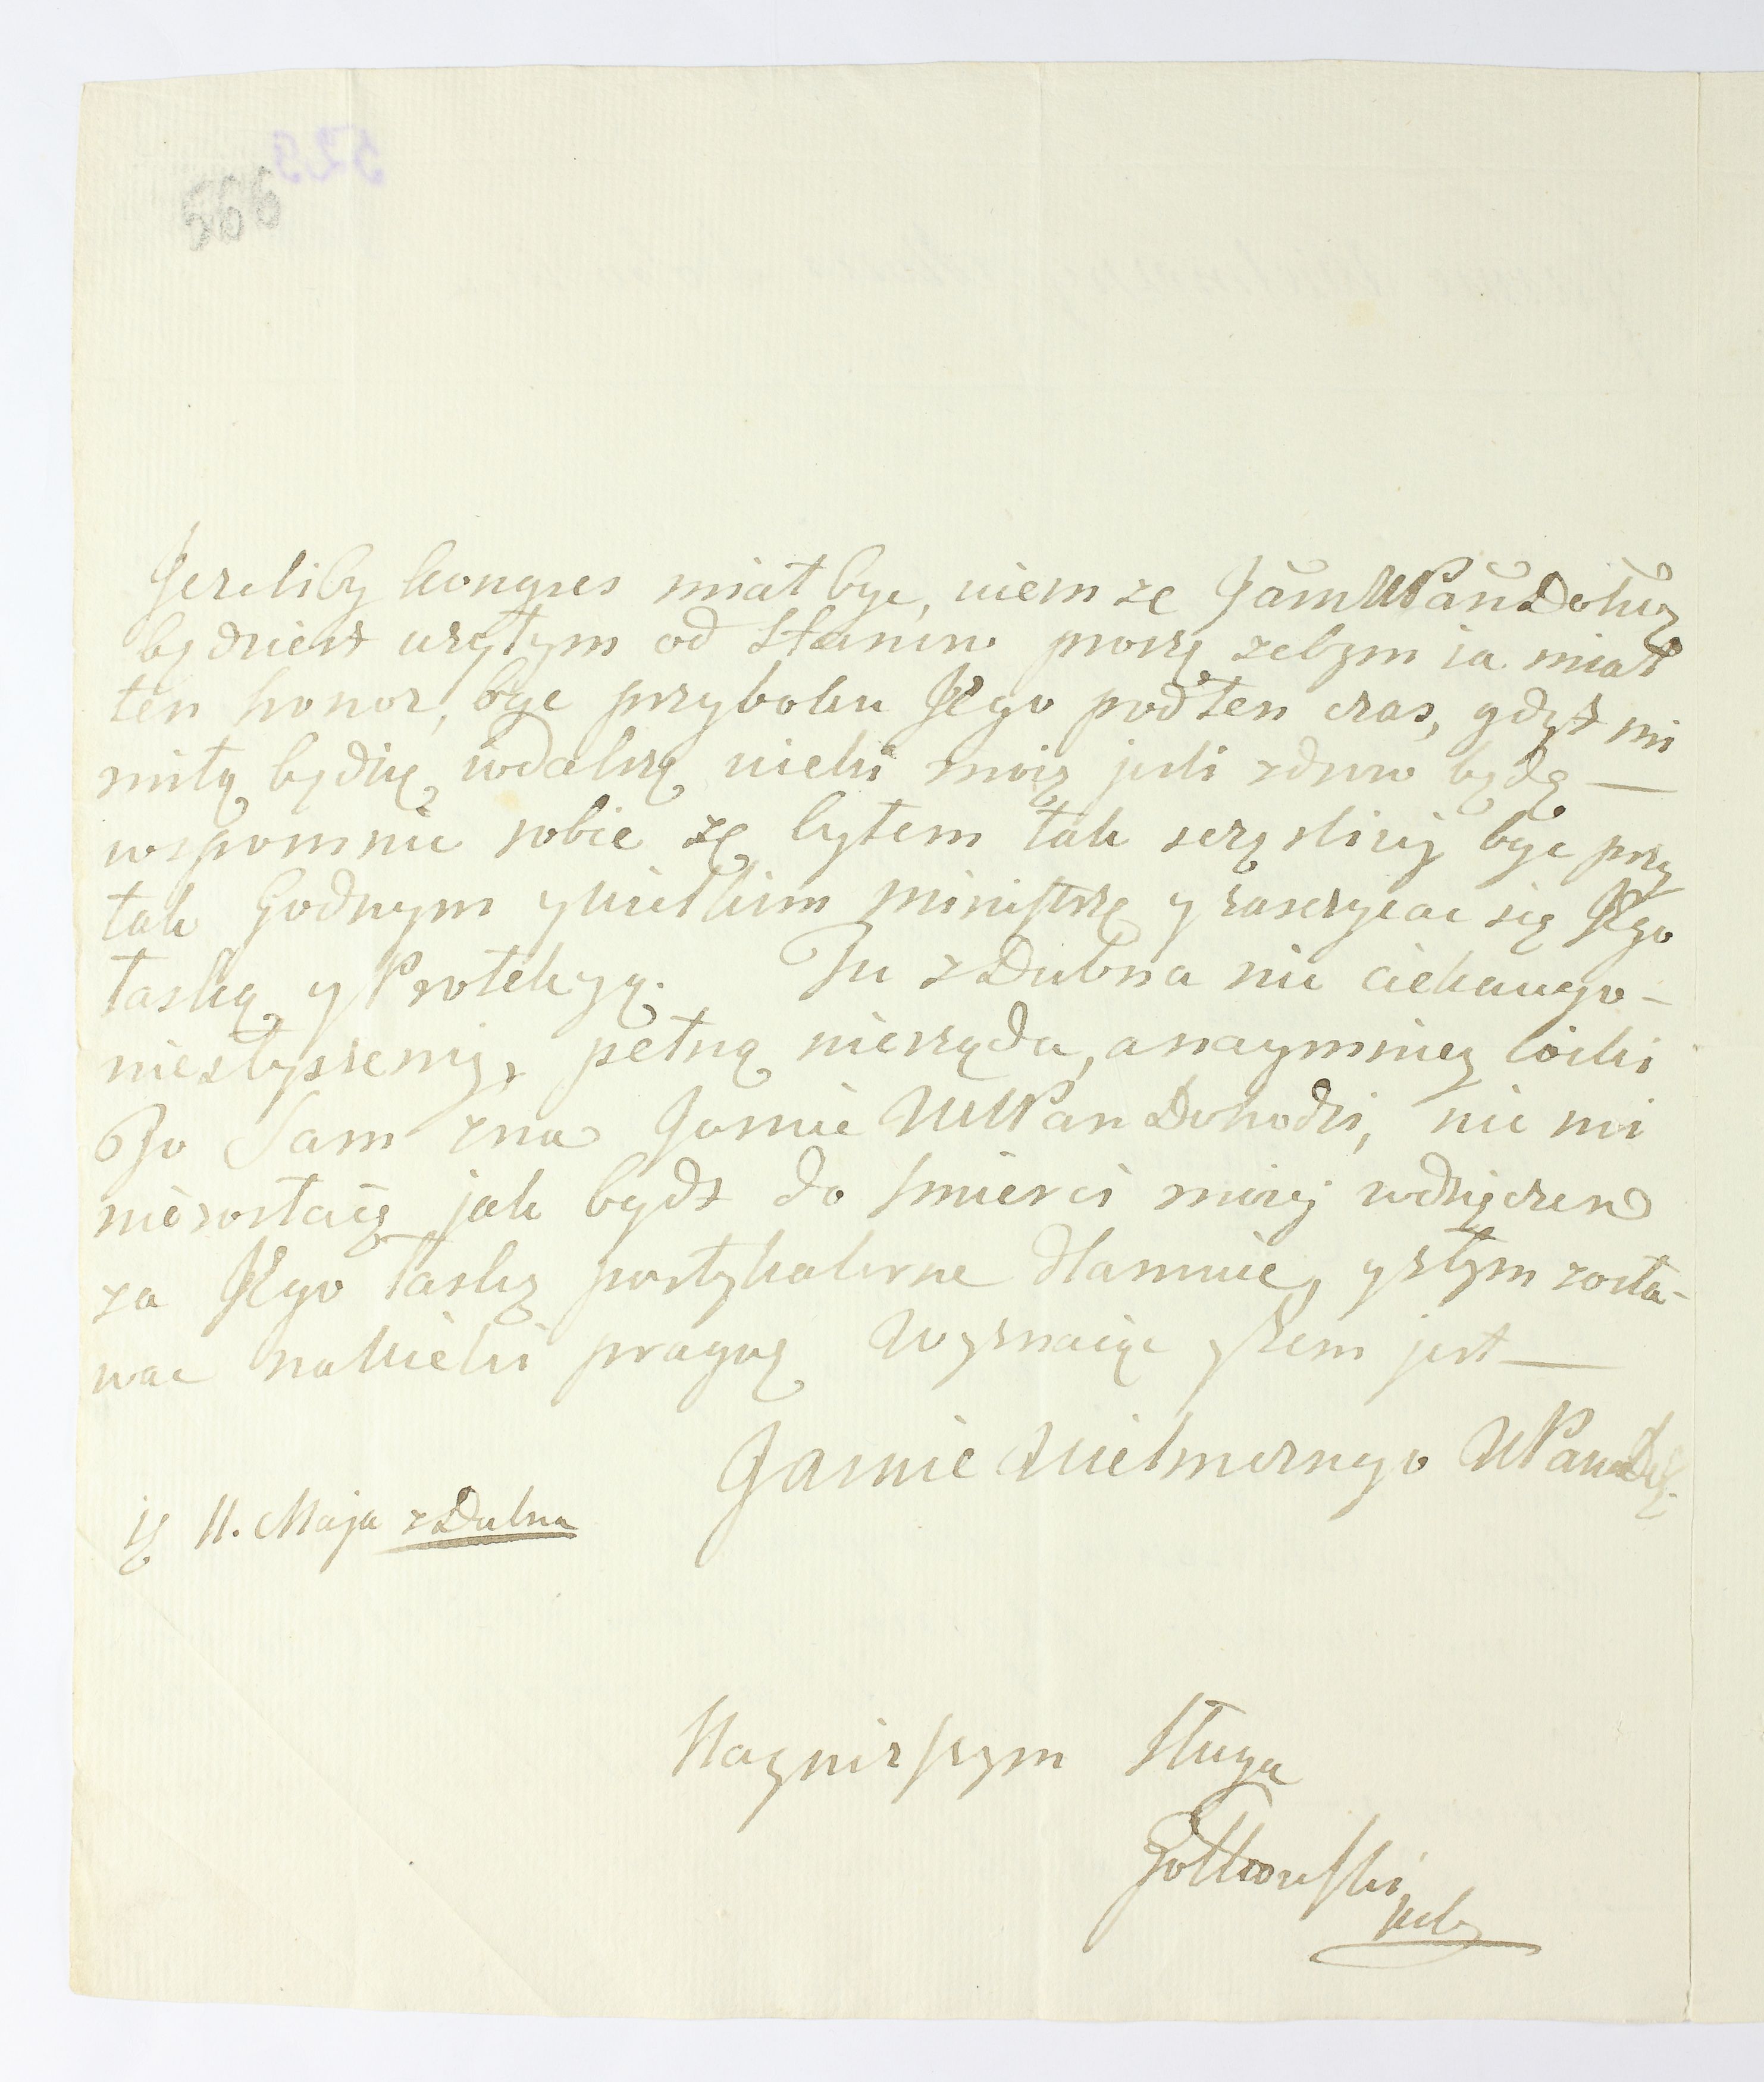 Jezeliby kongres miał byc, wiem ze JaśnWPan Dobrz
będziesz uzytym od Stanow proszę zebym ia miał
ten honor, byc przyboku JEgo pod ten czas, gdyż mi
miłą będzię, wdalszę wieki moię jesli zdrow będę —
wspomnic sobie zę bylem tak sczęsliwy byc przy
tak Godnym ywielkim ministrzę y zasczycac się JEgo
łaską y Protekcyą. Tu z Dubna nic ciekawego —
niesłyszemy, pełną nierządu, anaymniey
To Sam zna Jasnie WWPan Dobrodzi, nic mi
niezostaię jak bydz do smierci moiey wdzięczen
za JEgo łaskę dlamnie, yztym zosta-
wac nawieki pragnę Wyznaiąc yżem jest —
Jasnie Wielmoznego WPana Dob.
11. Maja z Dubna
Nayniszszym Sługa
Zołtowski